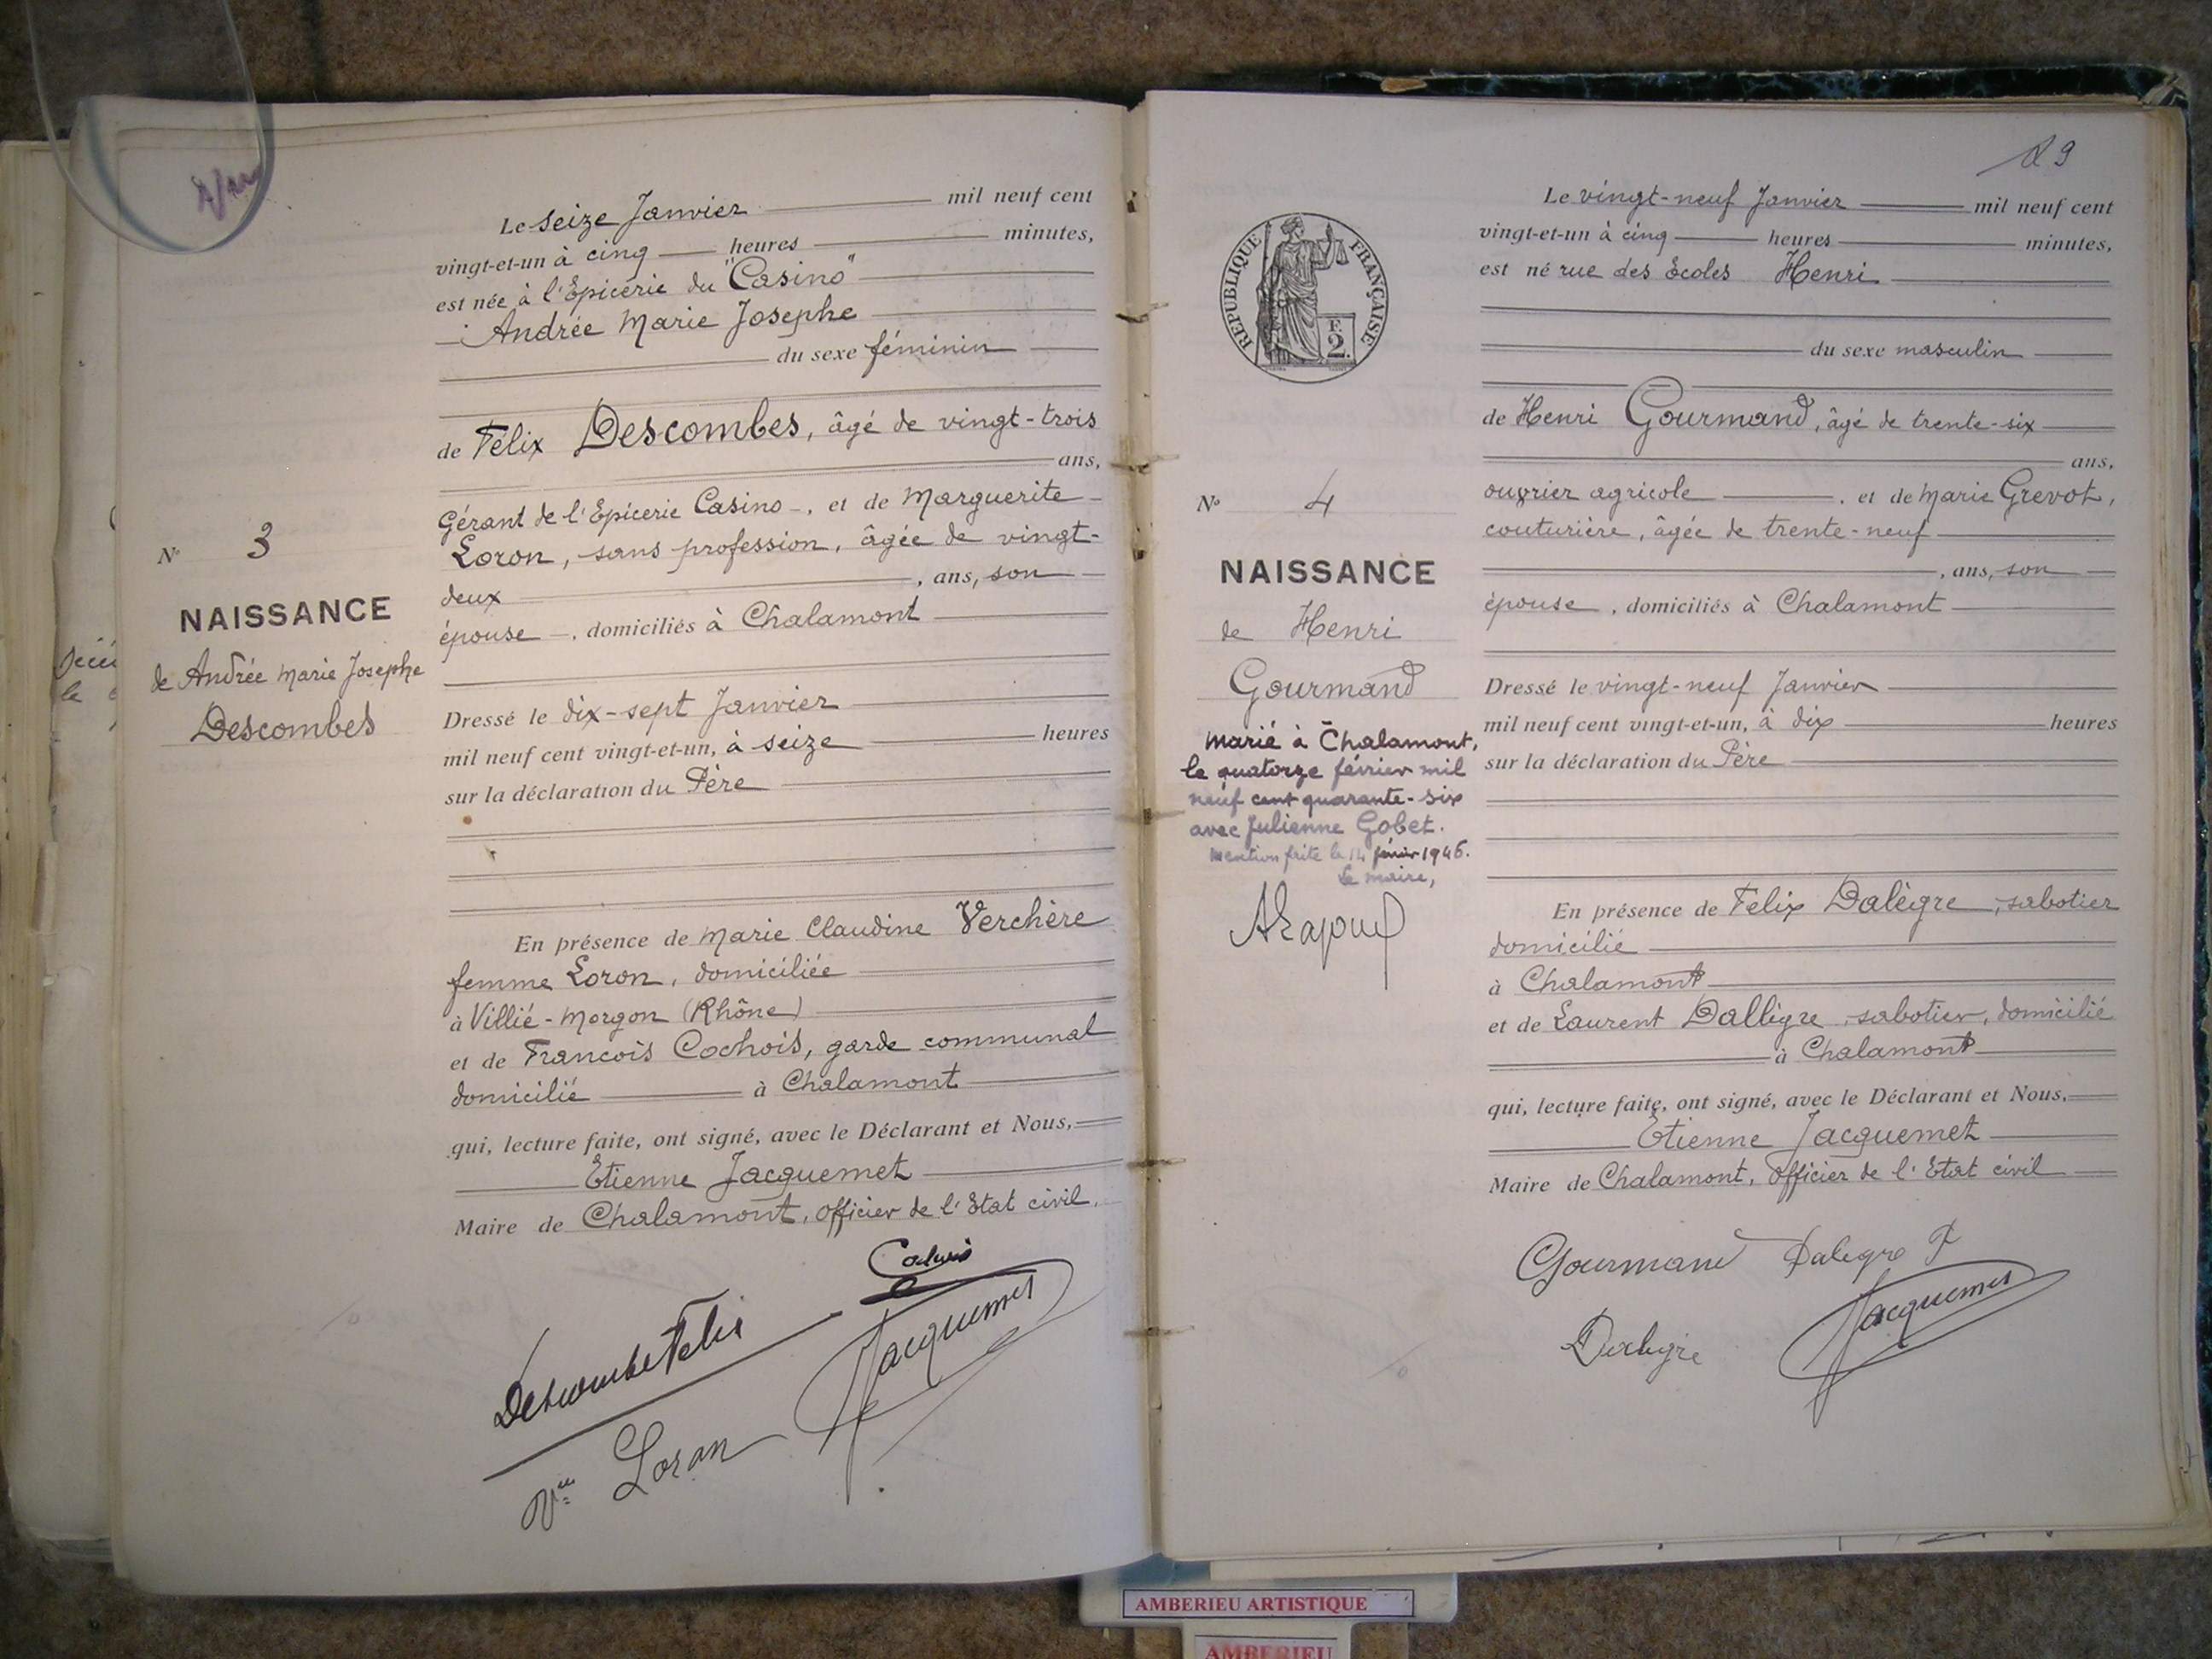 Le seize Janvier mil neuf cent
vingt-et-un à cinq heures minutes,
est née à l'Epicerie du "Casino"
Andrée Marie Josephe
du sexe féminin
de Félix Descombes, âgé de vingt-trois
ans,
Gérant de l'Epicerie Casino, et de Marguerite
Loron, sans profession, âgée de vingt-
deux , ans, son
épouse, domiciliés à Chalamont
Dressé le dix-sept Janvier
mil neuf cent vingt-et-un, à seize heures
sur la déclaration du Père
En présence de Marie Claudine Verchère
femme Loron, domiciliée
à Villié-Morgon (Rhône)
et de Francois Cochois, garde communal
domicilié à Chalamont
qui, lecture faite, ont signé, avec le Déclarant et Nous,
Etienne Jacquemet
Maire de Chalamont, Officier de l'Etat civil.
N° 3
NAISSANCE
de Andrée Marie Josephe
Descombes
Descombe Felix
Loran
Jacquemet
29
Le vingt-neuf Janvier mil neuf cent
vingt-et-un à cinq heures minutes,
est né rue des Ecoles Henri
du sexe masculin
de Henri Gourmand, âgé de trente-six
ans,
ouvrier agricole, et de Marie Grevot,
couturière, âgée de trente-neuf
, ans, son
épouse, domiciliés à Chalamont
Dressé le vingt-neuf Janvier
mil neuf cent vingt-et-un, à dix heures
sur la déclaration du Père
En présence de Felix Dalègre, sabotier
domicilié
à Chalamont
et de Laurent Dallègre sabotier, domicilié
à Chalamont
qui, lecture faite, ont signé, avec le Déclarant et Nous,
Etienne Jacquemet
Maire de Chalamont, Officier de l'Etat civil
REPUBLIQUE FRANÇAISE
F.
2.
N° 4
NAISSANCE
de Henri
Gourmand
Marié à Chalamont,
le quatorze février mil
neuf cent quarante-six
avec Julienne Gobet.
Mention faite le 14 février 1946.
Le maire,
Gourmand Dalegre F
Dalegre Jacquemet
AMBERIEU ARTISTIQUE
AMBERIEU